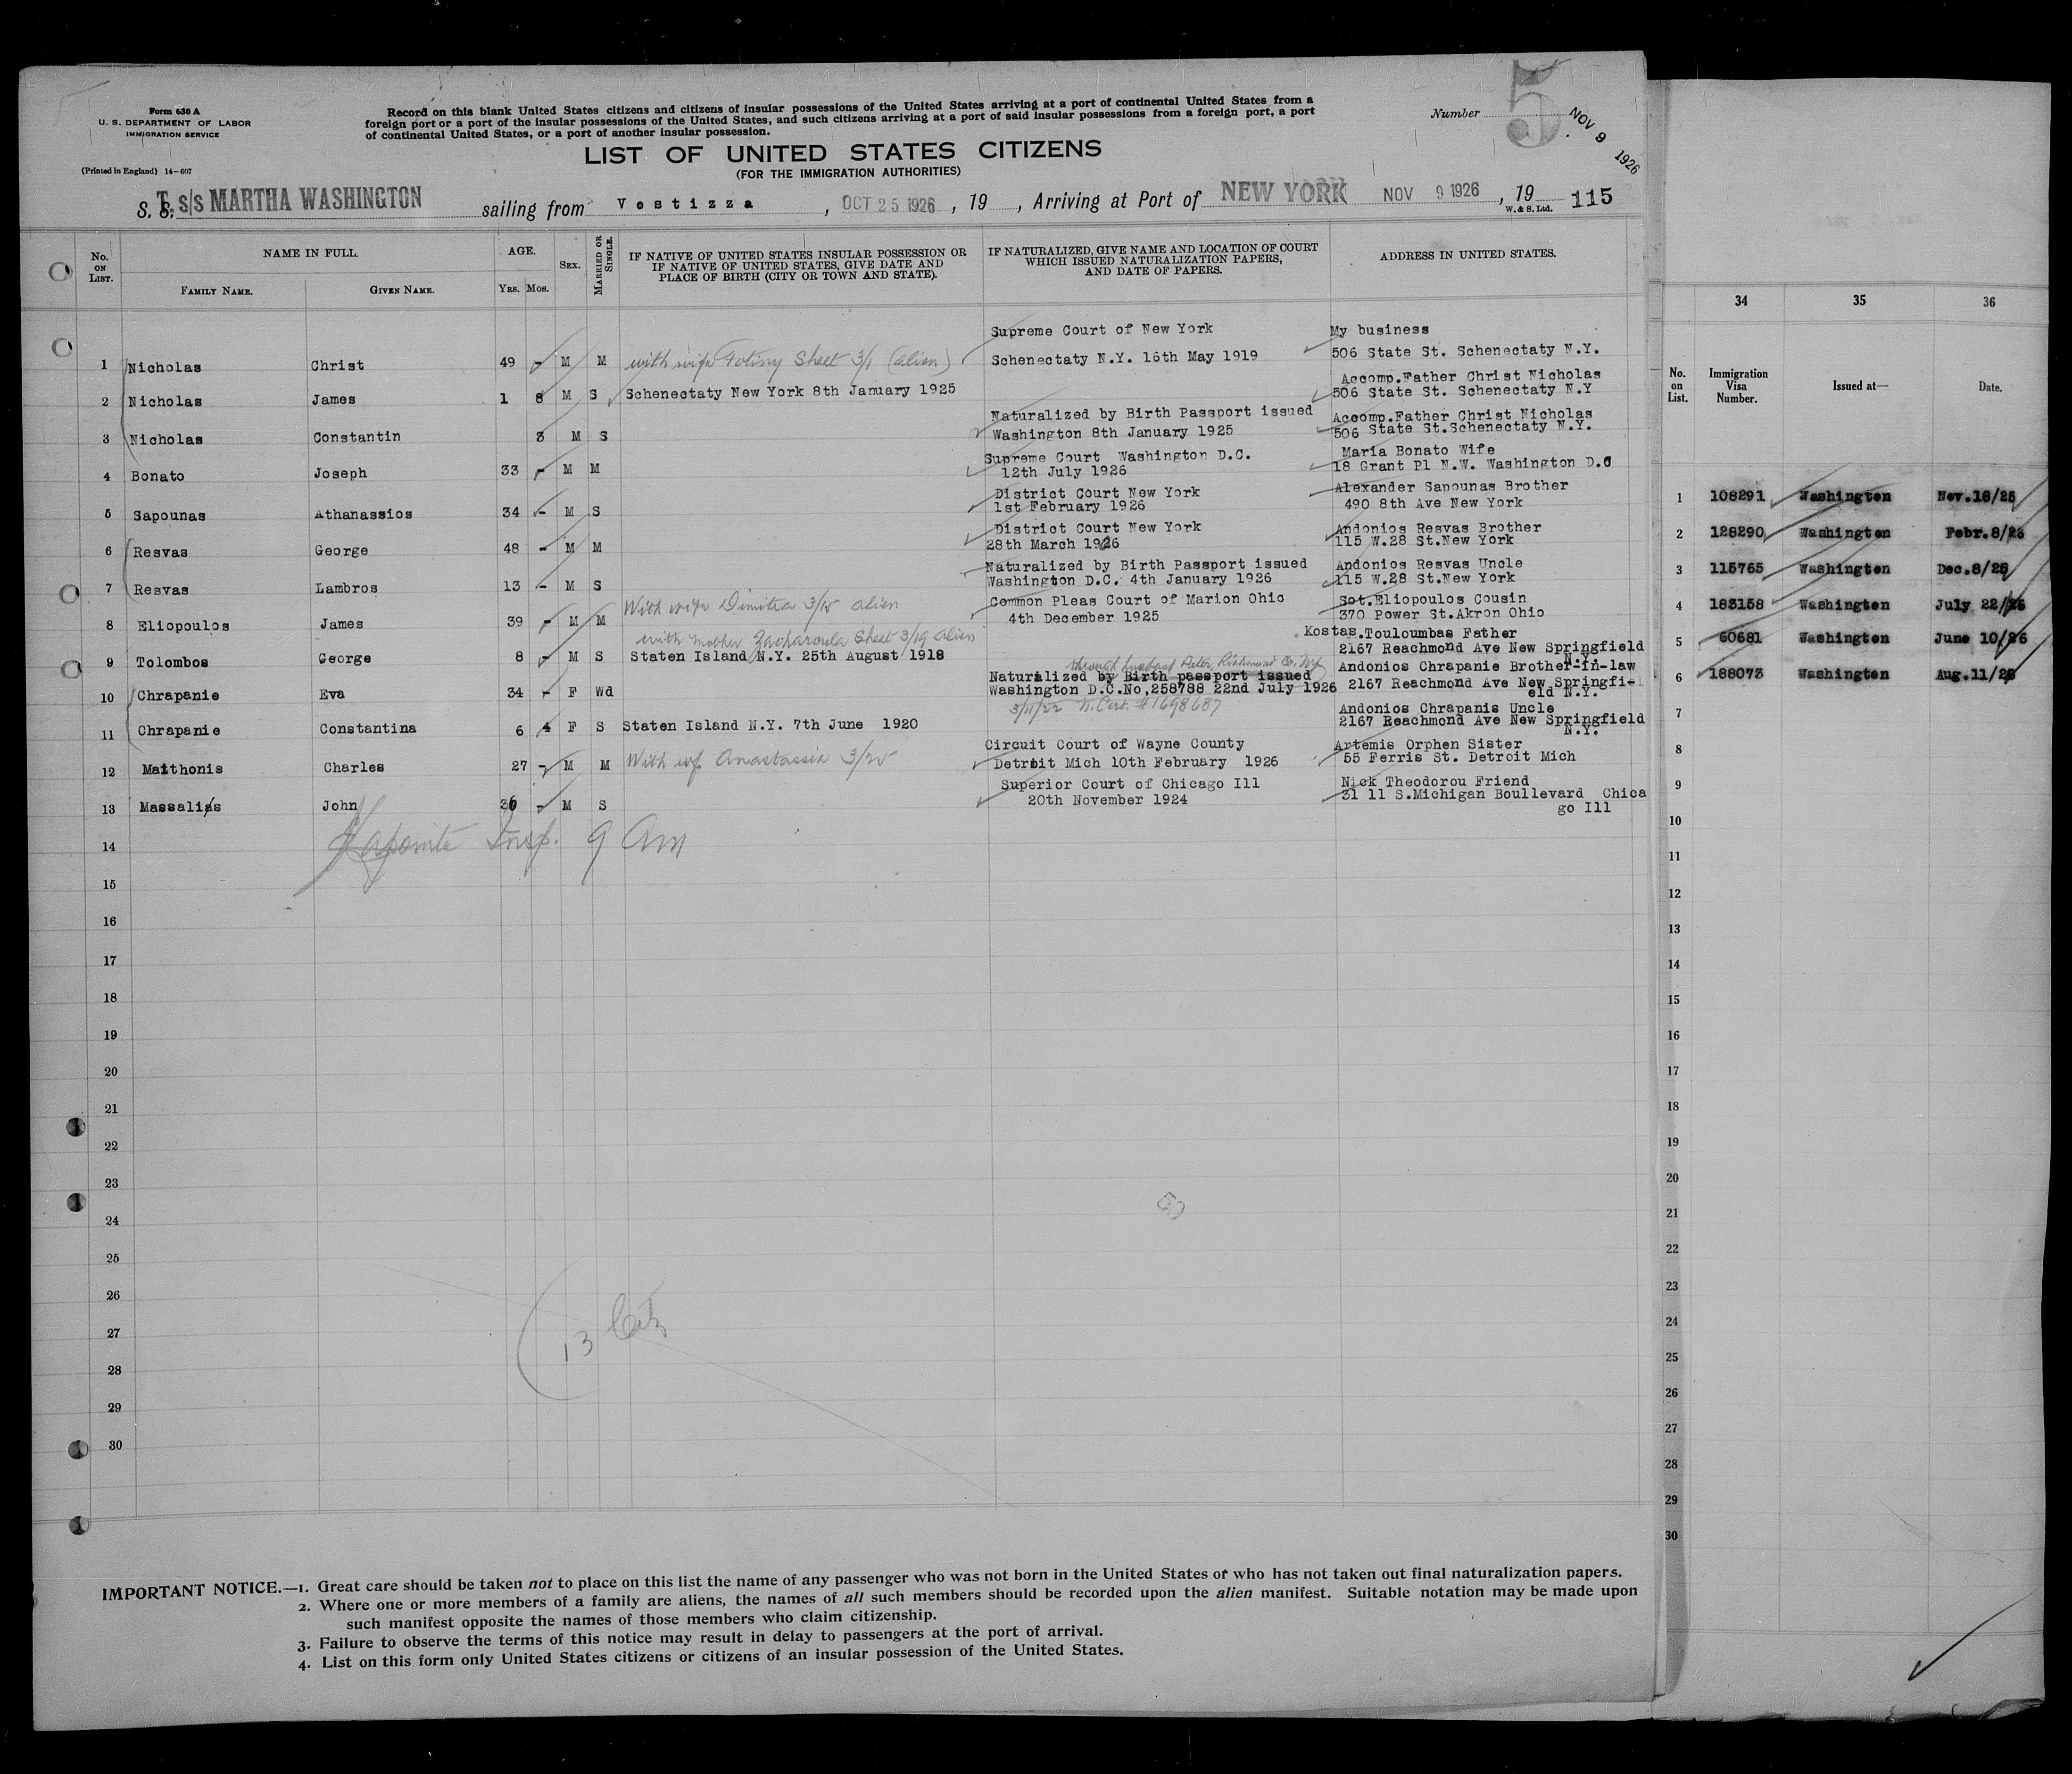 Form 630 A
U. S. DEPARTMENT OF LABOR
IMMIGRATION SERVICE
(Printed in England) 14-607
Record on this blank United States citizens and citizens of insular possessions of the United States arriving at a port of continental United States from a
foreign port or a port of the insular possessions of the United States, and such citizens arriving at a port of said insular possessions from a foreign port, a port
of continental United States, or a port of another insular possession.
Number 5
NOV 9 1926
LIST OF UNITED STATES CITIZENS
(FOR THE IMMIGRATION AUTHORITIES)
S. S. T. s/s MARTHA WASHINGTON sailing from Vostizza, OCT 25 1926, 19 , Arriving at Port of NEW YORK NOV 9 1926, 19 115
W. & S. Ltd.
No. on List. NAME IN FULL. AGE. SEX. MARRIED OR SINGLE. IF NATIVE OF UNITED STATES INSULAR POSSESSION OR IF NATIVE OF UNITED STATES, GIVE DATE AND PLACE OF BIRTH (CITY OR TOWN AND STATE). IF NATURALIZED, GIVE NAME AND LOCATION OF COURT WHICH ISSUED NATURALIZATION PAPERS, AND DATE OF PAPERS. ADDRESS IN UNITED STATES.
FAMILY NAME. GIVEN NAME. YRS. MOS.
Supreme Court of New York My business
1 Nicholas Christ 49 - M M with wife Fotiny Sheet 3/1 (alien) Schenectaty N.Y. 16th May 1919 506 State St. Schenectaty N.Y.
Accomp.Father Christ Nicholas
2 Nicholas James 1 8 M S Schenectaty New York 8th January 1925 506 State St. Schenectaty N.Y
Naturalized by Birth Passport issued Accomp.Father Christ Nicholas
3 Nicholas Constantin 3 M S Washington 8th January 1925 506 State St.Schenectaty N.Y.
Supreme Court Washington D.C. Maria Bonato Wife
4 Bonato Joseph 33 - M M 12th July 1926 18 Grant Pl N.W. Washington D.C
District Court New York Alexander Sapounas Brother
5 Sapounas Athanassios 34 - M S 1st February 1926 490 8th Ave New York
District Court New York Andonios Resvas Brother
6 Resvas George 48 - M M 28th March 1926 115 W.28 St.New York
Naturalized by Birth Passport issued Andonios Resvas Uncle
7 Resvas Lambros 13 - M S Washington D.C. 4th January 1926 115 W.28 St.New York
With wife Dimitra 3/15 alien Common Pleas Court of Marion Ohio Sot.Eliopoulos Cousin
8 Eliopoulos James 39 - M M 4th December 1925 370 Power St.Akron Ohio
with mother Zacharoula Sheet 3/19 alien Kostas.Touloumbas Father
9 Tolombos George 8 - M S Staten Island N.Y. 25th August 1918 2167 Reachmond Ave New Springfield N.Y.
through husband Peter, Richmond Co, NY
Naturalized by Birth passport issued Andonios Chrapanie Brother-in-law
10 Chrapanie Eva 34 - F Wd Washington D.C.No,258788 22nd July 1926 2167 Reachmond Ave New Springfi-
eld N.Y.
3/11/22 N. Cert. #1698687 Andonios Chrapanis Uncle
11 Chrapanie Constantina 6 4 F S Staten Island N.Y. 7th June 1920 2167 Reachmond Ave New Springfield
N.Y.
Circuit Court of Wayne County Artemis Orphen Sister
12 Maithonis Charles 27 - M M With wf Anastassia 3/25 Detroit Mich 10th February 1926 55 Ferris St. Detroit Mich
Superior Court of Chicago Ill Nick Theodorou Friend
13 Massalias John 36 - M S 20th November 1924 31 11 S.Michigan Boullevard Chica
go Ill
14 Insp. 9 Am
15
16
17
18
19
20
21
22
23
24
25
26
27
28
29
30
13 Cits
34 35 36
No. on List. Immigration Visa Number. Issued at— Date.
1 108291 Washington Nov.18/25
2 128290 Washington Febr.8/26
3 115765 Washington Dec.8/25
4 183158 Washington July 22/26
5 60681 Washington June 10/26
6 188073 Washington Aug.11/26
7
8
9
10
11
12
13
14
15
16
17
18
19
20
21
22
23
24
25
26
27
28
29
30
IMPORTANT NOTICE.—1. Great care should be taken not to place on this list the name of any passenger who was not born in the United States or who has not taken out final naturalization papers.
2. Where one or more members of a family are aliens, the names of all such members should be recorded upon the alien manifest. Suitable notation may be made upon
such manifest opposite the names of those members who claim citizenship.
3. Failure to observe the terms of this notice may result in delay to passengers at the port of arrival.
4. List on this form only United States citizens or citizens of an insular possession of the United States.